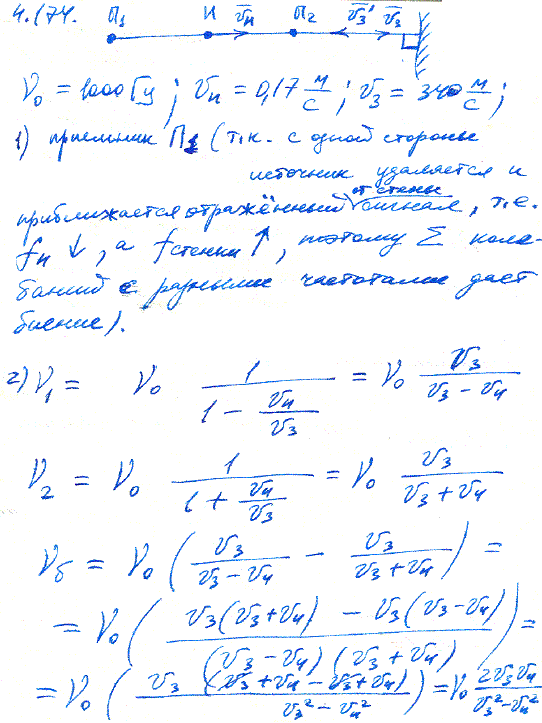 4.174. П₁ И v̄и П₂ v̄з' v̄з
ν₀ = 1000 Гц ; vи = 0,17 м/с ; vз = 340 м/с ;
1) приемник П1 (т.к. с одной стороны
источник удаляется и
приближается отражённый от стены сигнал, т.е.
fи ↓, а fстенки ↑, поэтому Σ коле-
баний с разными частотами дает
биение).
2) ν₁ = ν₀ 1/(1 - vи/vз) = ν₀ vз/(vз - vи)
ν₂ = ν₀ 1/(1 + vи/vз) = ν₀ vз/(vз + vи)
νб = ν₀ (vз/(vз - vи) - vз/(vз + vи)) =
= ν₀ ((vз(vз + vи) - vз(vз - vи))/((vз - vи)(vз + vи))) =
= ν₀ (vз(vз + vи - vз + vи)/(vз² - vи²)) = ν₀ 2vзvи/(vз² - vи²)